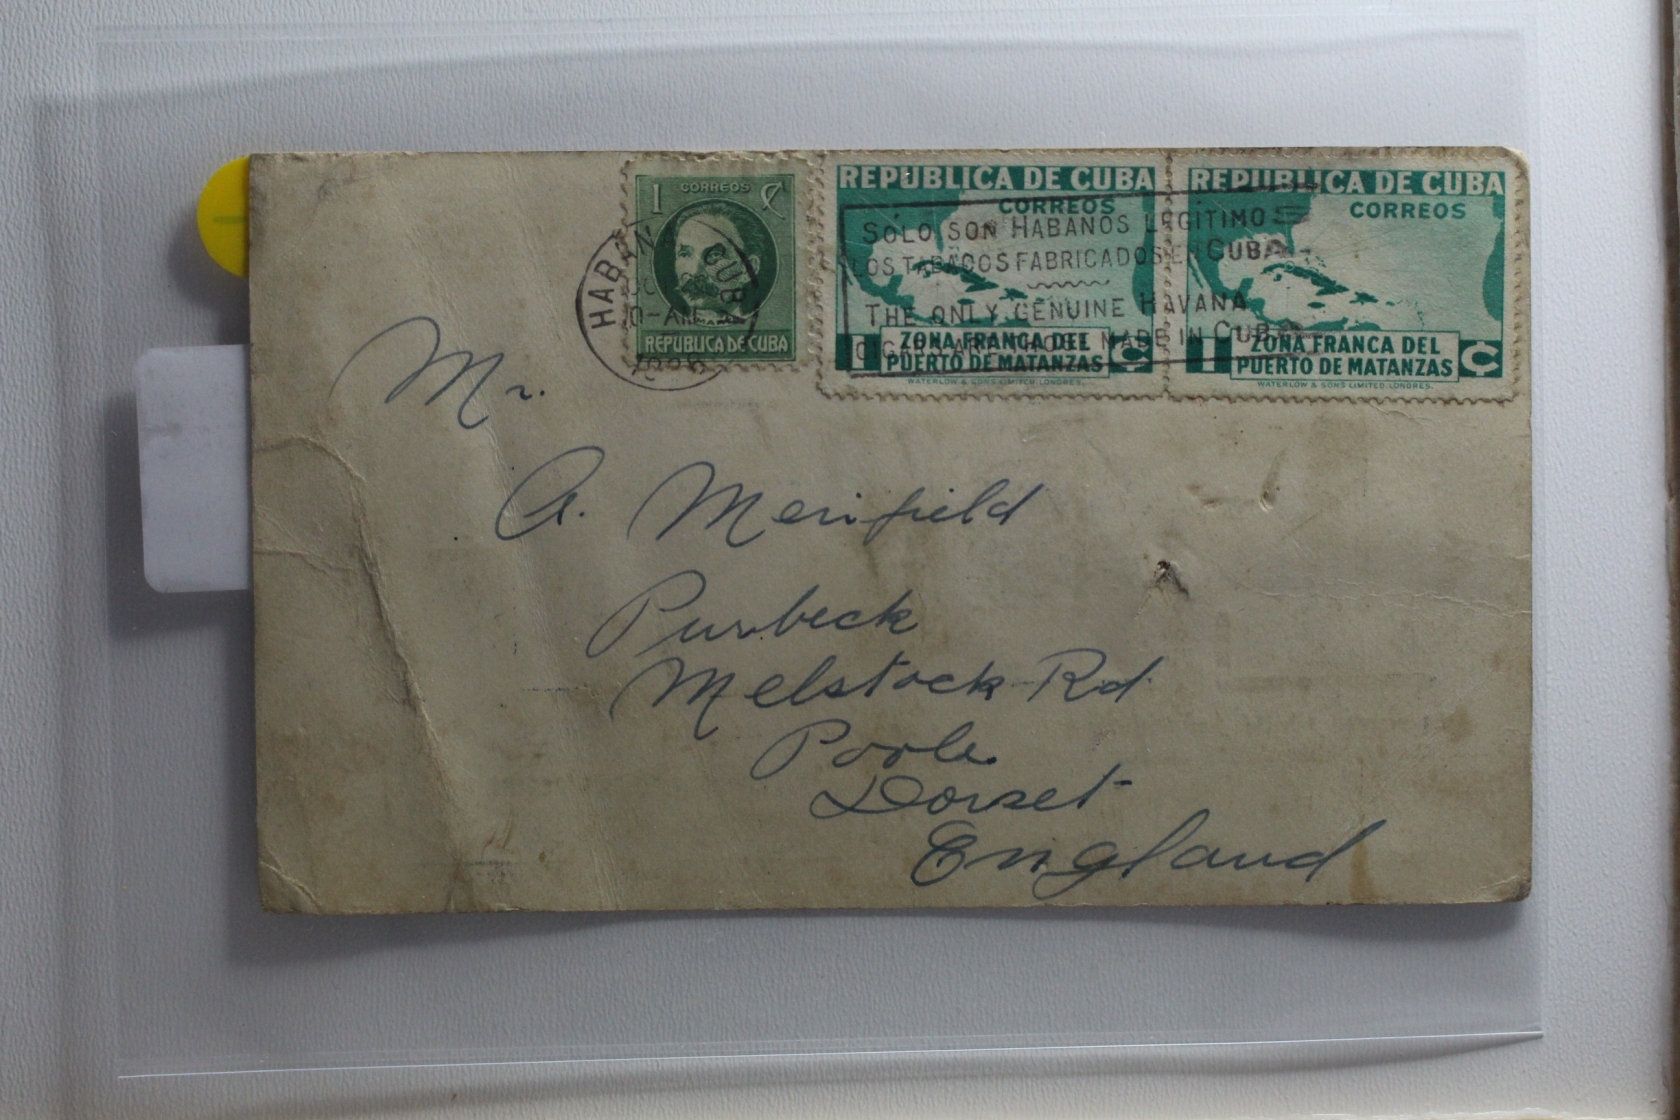 1 CORREOS
HABANA, CUBA
10-AM
REPUBLICA DE CUBA
REPUBLICA DE CUBA
CORREOS
1 ZONA FRANCA DEL
PUERTO DE MATANZAS C
WATERLOW & SONS LIMITED. LONDRES.
REPUBLICA DE CUBA
CORREOS
1 ZONA FRANCA DEL
PUERTO DE MATANZAS C
WATERLOW & SONS LIMITED. LONDRES.
SÓLO SON HABANOS LEGITIMOS
LOS TABACOS FABRICADOS EN CUBA
THE ONLY GENUINE HAVANA
CIGARS ARE THOSE MADE IN CUBA
Mr.
A. Merifield
Purbeck
Melstock Rd
Poole
Dorset
England